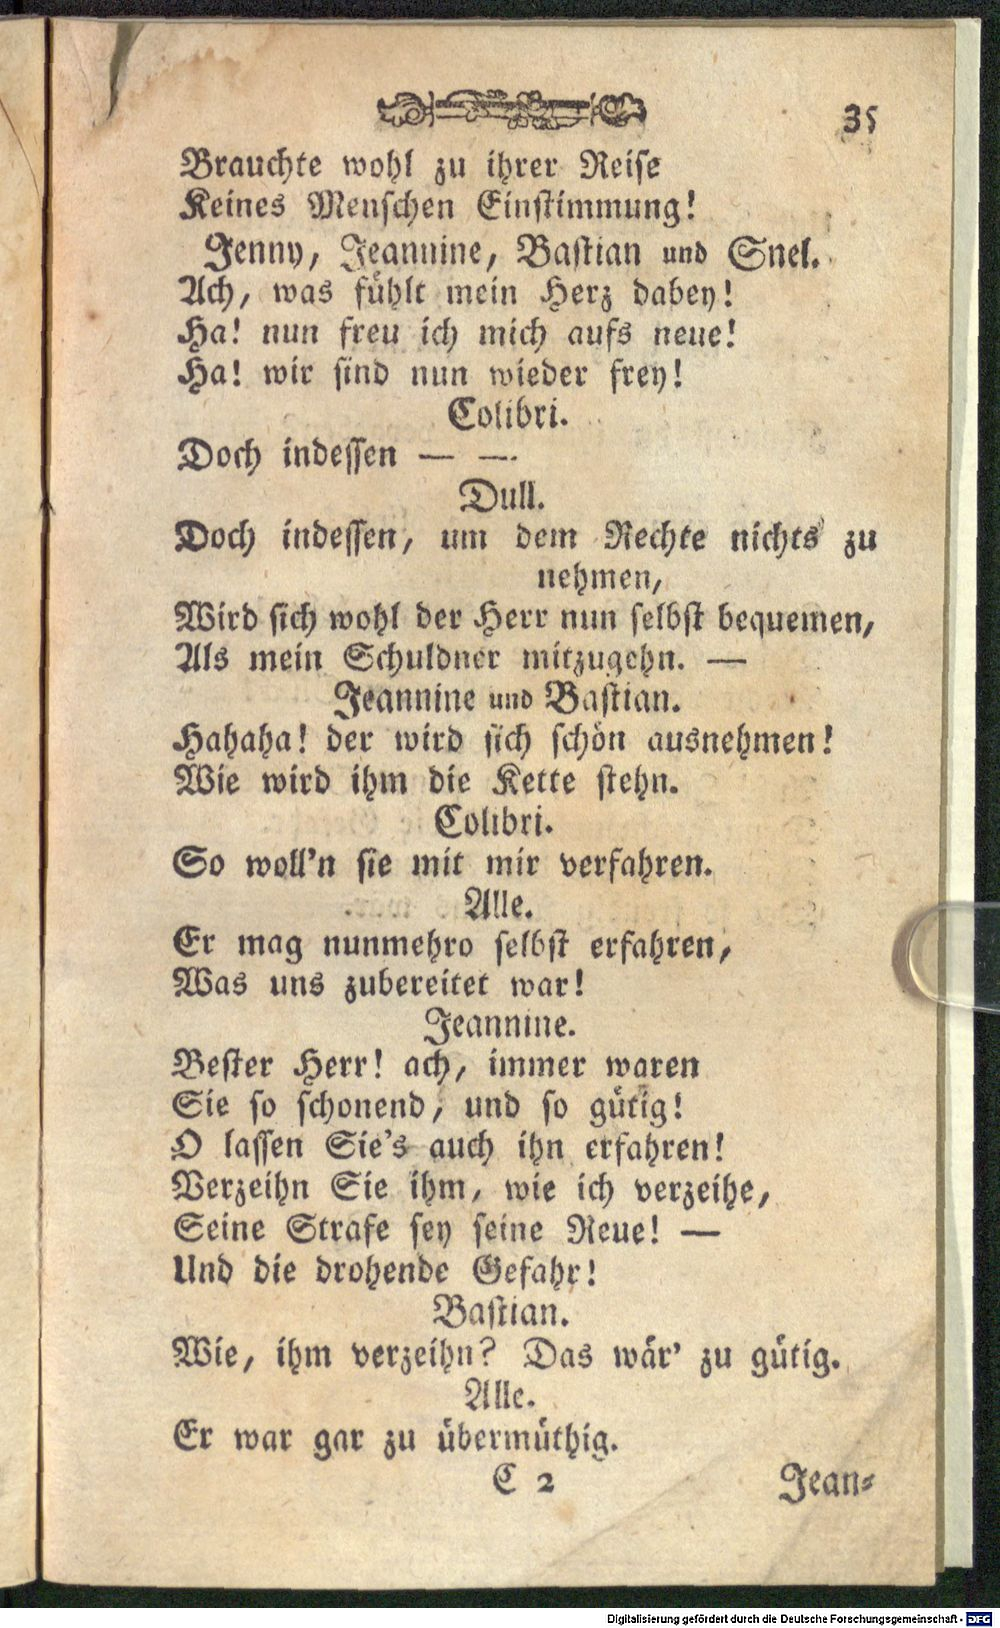 35
Brauchte wohl zu ihrer Reise
Keines Menschen Einstimmung!
Jenny, Jeannine, Bastian und Snel.
Ach, was fühlt mein Herz dabey!
Ha! nun freu ich mich aufs neue!
Ha! wir sind nun wieder frey!
Colibri.
Doch indessen — —
Dull.
Doch indessen, um dem Rechte nichts zu
nehmen,
Wird sich wohl der Herr nun selbst bequemen,
Als mein Schuldner mitzugehn. —
Jeannine und Bastian.
Hahaha! der wird sich schön ausnehmen!
Wie wird ihm die Kette stehn.
Colibri.
So woll'n sie mit mir verfahren.
Alle.
Er mag nunmehro selbst erfahren,
Was uns zubereitet war!
Jeannine.
Bester Herr! ach, immer waren
Sie so schonend, und so gütig!
O lassen Sie's auch ihn erfahren!
Verzeihn Sie ihm, wie ich verzeihe,
Seine Strafe sey seine Reue! —
Und die drohende Gefahr!
Bastian.
Wie, ihm verzeihn? Das wär' zu gütig.
Alle.
Er war gar zu übermüthig.
C 2
Jean-
Digitalisierung gefördert durch die Deutsche Forschungsgemeinschaft - DFG